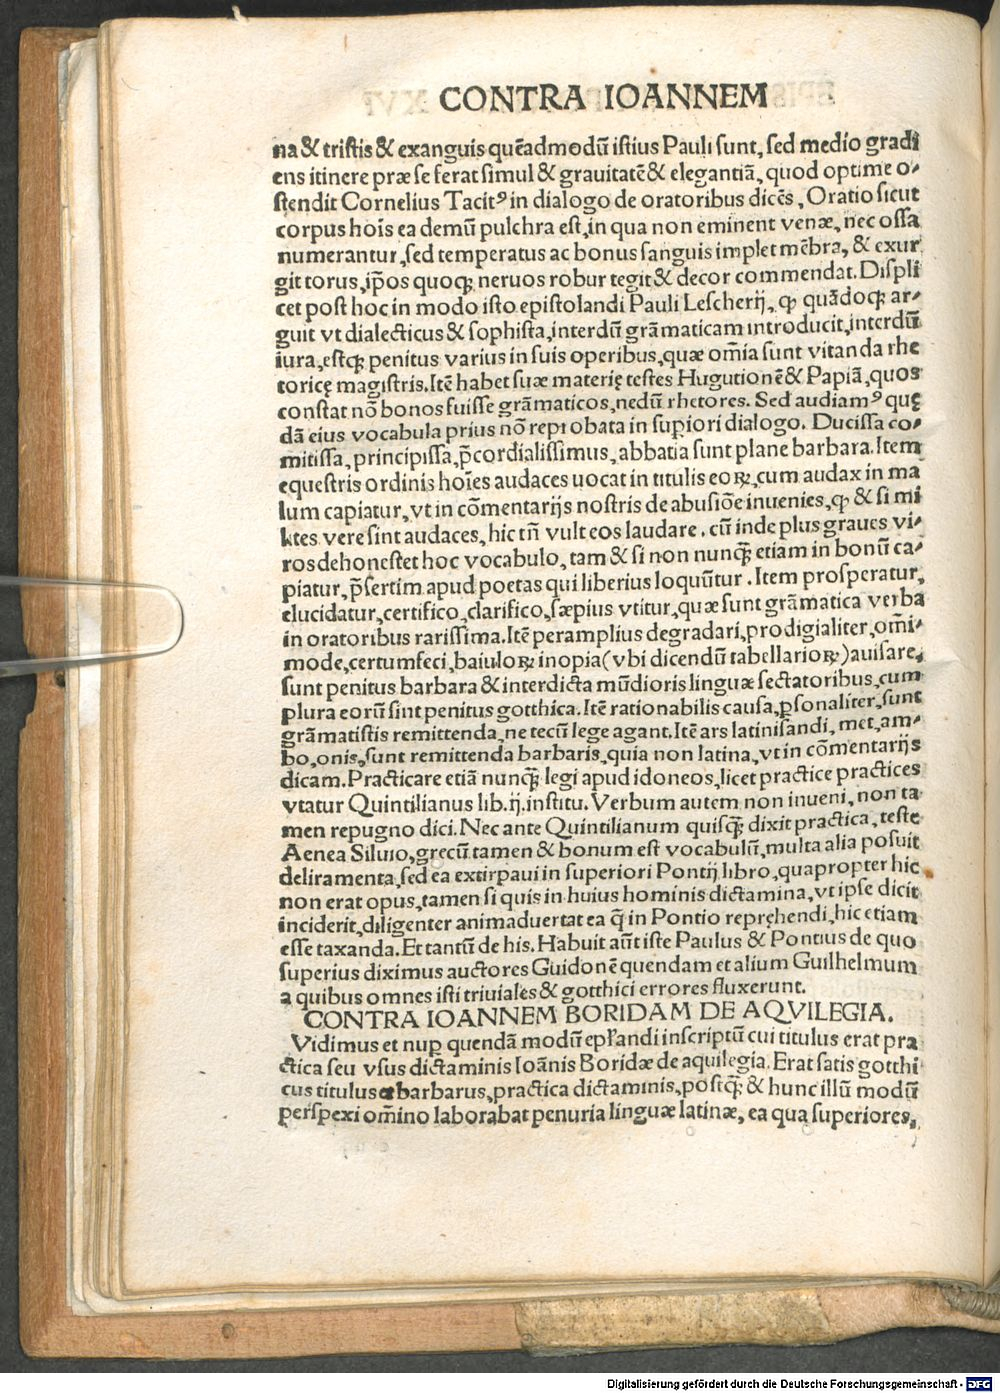 CONTRA IOANNEM
na & tristis & exanguis quēadmodū istius Pauli sunt, sed medio gradi
ens itinere præ se ferat simul & grauitatē & elegantiā, quod optime o⸗
stendit Cornelius Tacitꝰ in dialogo de oratoribus dicēs, Oratio sicut
corpus hoīs ea demū pulchra est, in qua non eminent venæ, nec ossa
numerantur, sed temperatus ac bonus sanguis implet mēbra, & exur
git torus, ip̄os quoqꝫ neruos robur tegit & decor commendat. Displi
cet post hoc in modo isto epistolandi Pauli Lescherij, ꝙ quādoqꝫ ar⸗
guit vt dialecticus & sophista, interdū grāmaticam introducit, interdū
iura, estqꝫ penitus varius in suis operibus, quæ om̄ia sunt vitanda rhe
toricę magistris. Itē habet suæ materię testes Hugutionē & Papiā, quos
constat nō bonos fuisse grāmaticos, nedū rhetores. Sed audiamꝰ quę
dā eius vocabula prius nō reprobata in supiori dialogo. Ducissa co⸗
mitissa, principissa, p̄cordialissimus, abbatia sunt plane barbara. Item
equestris ordinis hoīes audaces uocat in titulis eoꝝ, cum audax in ma
lum capiatur, vt in cōmentarijs nostris de abusiōe inuenies, ꝙ & si mi
lites vere sint audaces, hic tn̄ vult eos laudare. cū inde plus graues vi⸗
ros dehonestet hoc vocabulo, tam & si non nunqꝫ̄ etiam in bonū ca⸗
piatur, p̄sertim apud poetas qui liberius loquūtur. Item prosperatur,
elucidatur, certifico, clarifico, sæpius vtitur, quæ sunt grāmatica verba
in oratoribus rarissima. Itē peramplius degradari, prodigialiter, om̄i⸗
mode, certumfeci, baiuloꝝ inopia (vbi dicendū tabellarioꝝ) auisare,
sunt penitus barbara & interdicta mūdioris linguæ sectatoribus, cum
plura eorū sint penitus gotthica. Itē rationabilis causa, ꝑsonaliter, sunt
grāmatistis remittenda, ne tecū lege agant. Itē ars latinisandi, met, am⸗
bo, onis, sunt remittenda barbaris, quia non latina, vt in cōmentarijs
dicam. Practicare etiā nunqꝫ̄ legi apud idoneos, licet practice practices
vtatur Quintilianus lib. ij. institu. Verbum autem non inueni, non ta
men repugno dici. Nec ante Quintilianum quisqꝫ̄ dixit practica, teste
Aenea Siluio, grecū tamen & bonum est vocabulū, multa alia posuit
deliramenta, sed ea extirpaui in superiori Pontij libro, quapropter hic
non erat opus, tamen si quis in huius hominis dictamina, vt ipse dicit
inciderit, diligenter animaduertat ea q̄ in Pontio repręhendi, hic etiam
esse taxanda. Et tantū de his. Habuit aūt iste Paulus & Pontius de quo
superius diximus auctores Guidonē quendam et alium Guilhelmum
a quibus omnes isti triuiales & gotthici errores fluxerunt.
CONTRA IOANNEM BORIDAM DE AQVILEGIA.
Vidimus et nuꝑ quendā modū ep̄landi inscriptū cui titulus erat pra
ctica seu vsus dictaminis Ioānis Boridæ de aquilegia. Erat satis gotthi
cus titulus & barbarus, practica dictaminis, postqꝫ̄ & hunc illū modū
perspexi om̄ino laborabat penuria linguæ latinæ, ea qua superiores,
Digitalisierung gefördert durch die Deutsche Forschungsgemeinschaft - DFG